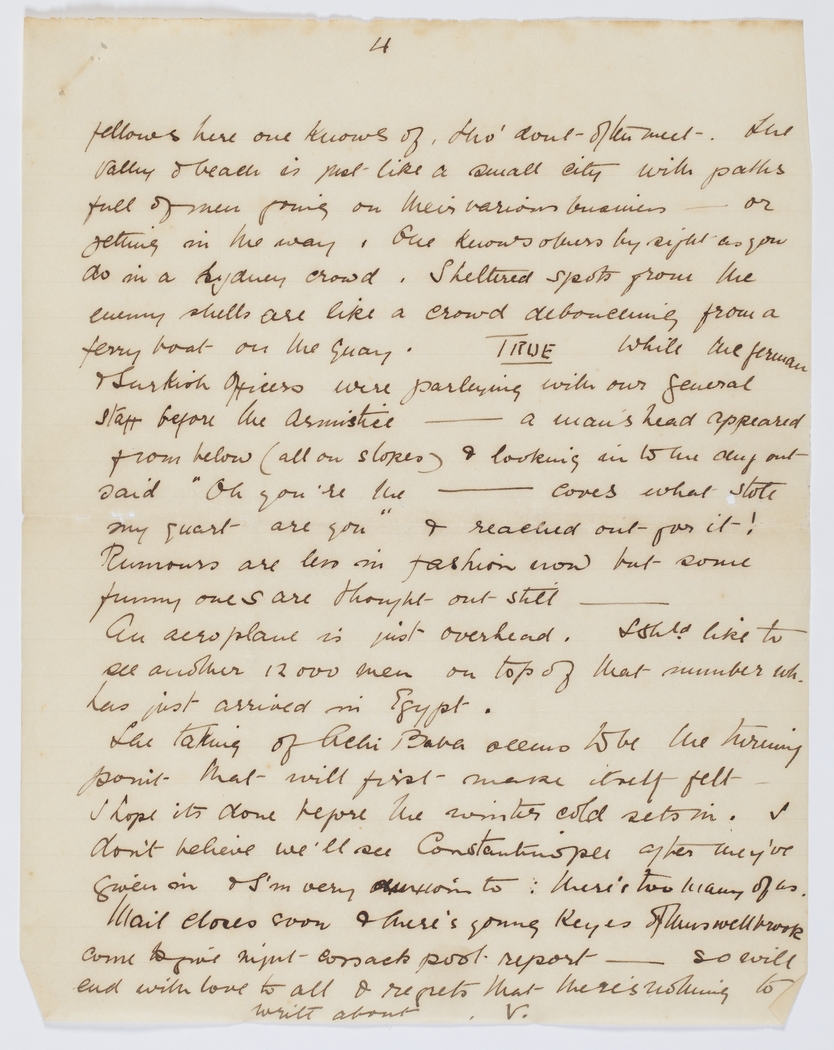 4
fellows here one knows of, tho' dont often meet. The
Valley & beach is just like a small city with paths
full of men going on their various business — or
getting in the way. One knows others by sight as you
do in a Sydney crowd. Sheltered spots from the
enemy shells are like a crowd debouncing from a
ferry boat on the Quay. TRUE While the German
& Turkish Officers were parleying with our General
Staff before the Armistice — a man's head appeared
from below (all on slopes) & looking in to the dug out
said "Oh you're the — coves what stole
my quart are you" & reached out for it!
Rumours are less in fashion now but some
funny ones are thought out still —
An aeroplane is just overhead. I shld like to
see another 12000 men on top of that number wh.
has just arrived in Egypt.
The taking of Achi Baba seems to be the turning
point that will first make itself felt –
I hope its done before the winter cold sets in. I
don't believe we'll see Constantinople after they've
given in & I'm very anxious to : there's too many of us.
Mail closes soon & here's young Keyes of Muswellbrook
come to give night cossack post report — so will
end with love to all & regrets that there is nothing to
write about. V.